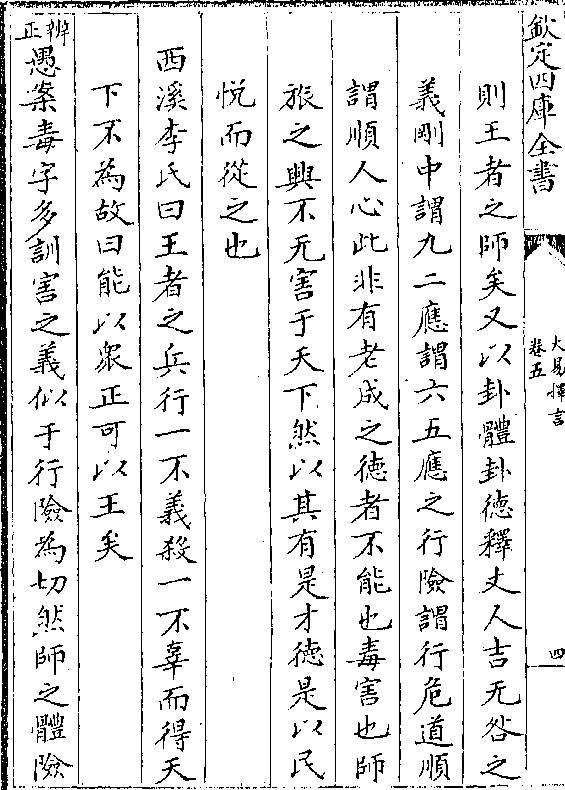 欽定四庫全書
大易擇言
卷五
四
則王者之師矣又以卦體卦德釋丈人吉无咎之
義剛中謂九二應謂六五應之行險謂行危道順
謂順人心此非有老成之德者不能也毒害也師
旅之興不无害于天下然以其有是才德是以民
悦而從之也
西溪李氏曰王者之兵行一不義殺一不辜而得天
下不為故曰能以衆正可以王矣
辨正
愚案毒字多訓害之義似于行險為切然師之體險